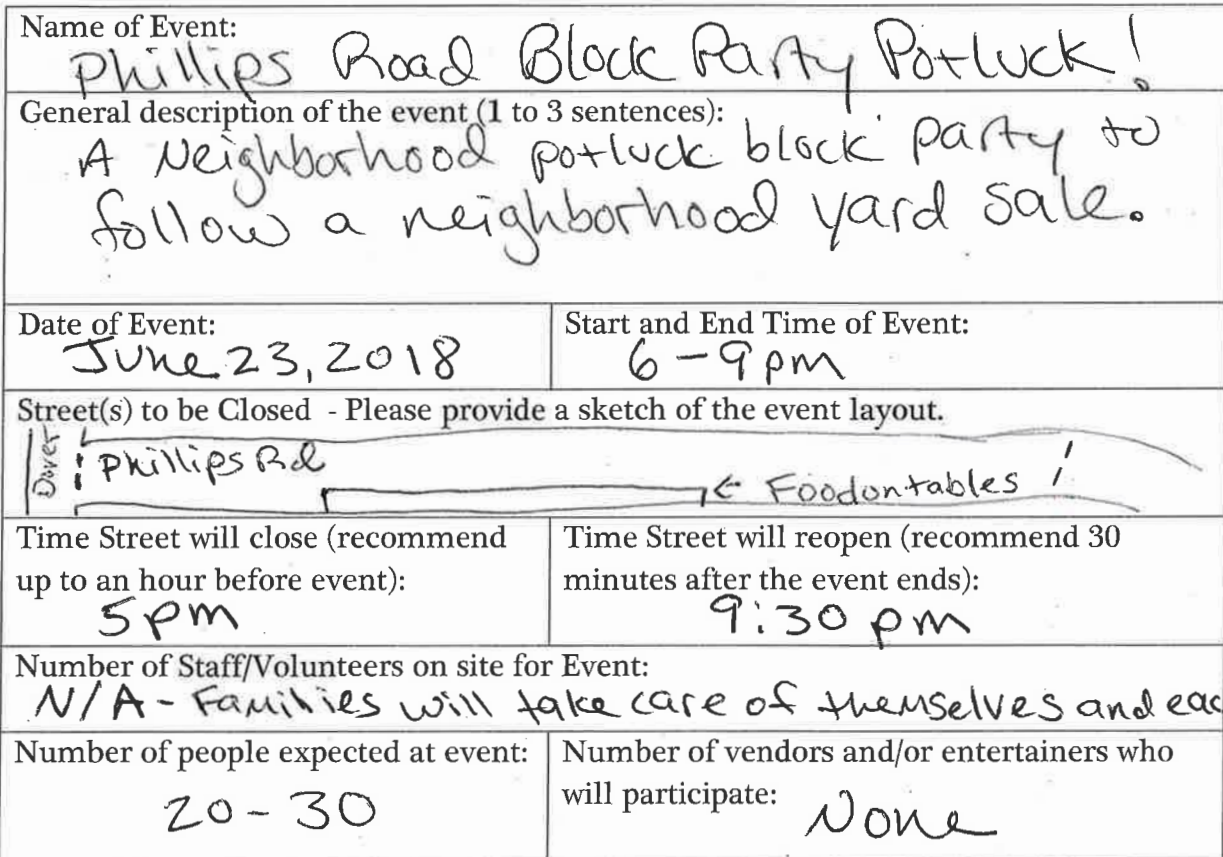 Name of Event:
Phillips Road Block Party Potluck!
General description of the event (1 to 3 sentences):
A Neighborhood potluck block party to
follow a neighborhood yard sale.
Date of Event:
June 23, 2018
Start and End Time of Event:
6-9pm
Street(s) to be Closed - Please provide a sketch of the event layout.
Dover
Phillips Rd
← Food on tables
Time Street will close (recommend
up to an hour before event):
5pm
Time Street will reopen (recommend 30
minutes after the event ends):
9:30 pm
Number of Staff/Volunteers on site for Event:
N/A - Families will take care of themselves and eac
Number of people expected at event:
20-30
Number of vendors and/or entertainers who
will participate:
None